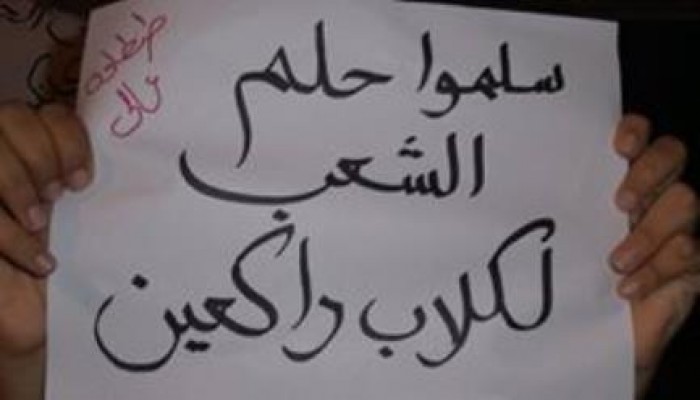 سلموا حلم
الشعب
لكلاب راكعين